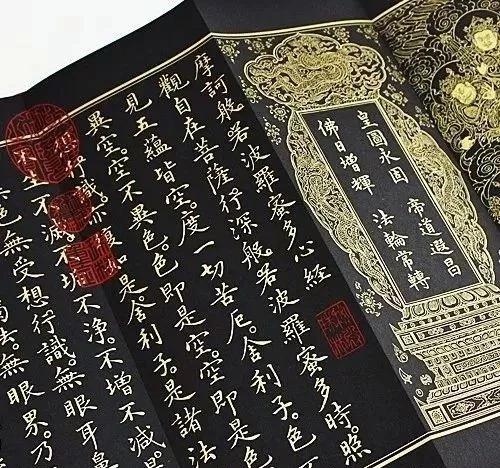 皇圖永固 帝道遐昌
佛日增輝 法輪常轉
摩訶般若波羅蜜多心經
觀自在菩薩行深般若波羅蜜多時。照
見五蘊皆空。度一切苦厄。舍利子。色
異空。空不異色。色即是空。空即是
行識。亦復如是。舍利子。是諸法
不生不滅。不垢不淨。不增不減。是
色。無受想行識。無眼耳鼻
法。無眼界。乃